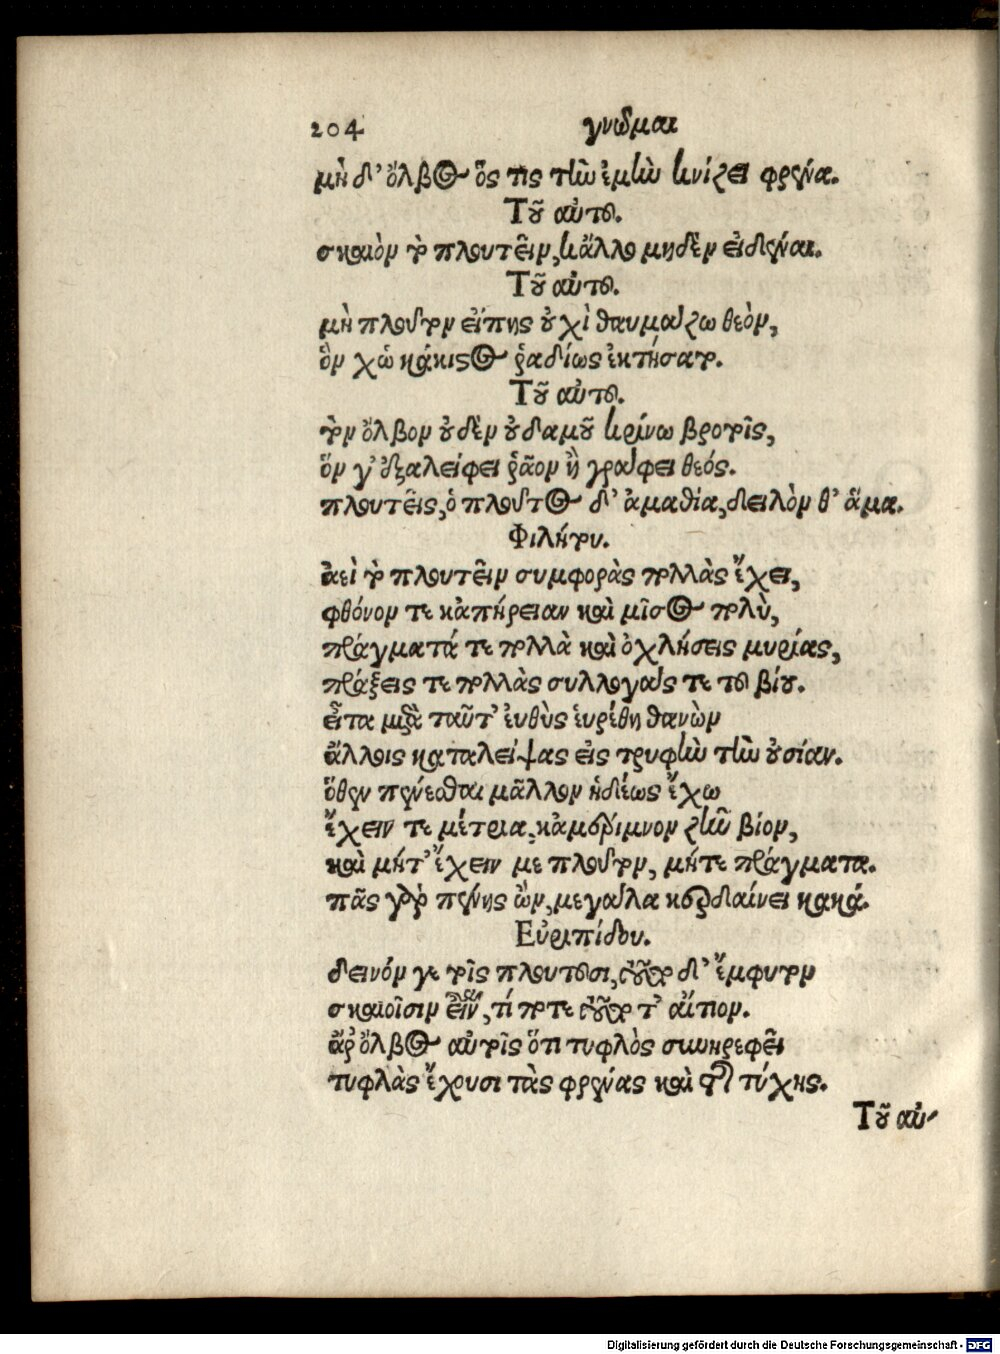 204 γνῶμαι
μὴ δ' ὄλβος ὅς τις τὴν ἐμὴν κνίζει φρένα.
Τοῦ αὐτοῦ.
σκαιὸν τὸ πλουτεῖν, κἄλλο μηδὲν εἰδέναι.
Τοῦ αὐτοῦ.
μὴ πλοῦτον εἴπῃς οὐχὶ θαυμάζω θεὸν,
ὃν χὡ κάκιστος ῥαδίως ἐκτήσατο.
Τοῦ αὐτοῦ.
τὸν ὄλβον οὐδὲν οὐδαμοῦ κρίνω βροτοῖς,
ὅν γ' ἐξαλείφει ῥᾶον ἢ γράφει θεός.
πλουτεῖς, ὁ πλοῦτος δ' ἀμαθία, δειλὸν θ' ἅμα.
Φιλήτου.
ἀεὶ τὸ πλουτεῖν συμφορὰς πολλὰς ἔχει,
φθόνον τε κἀπήρειαν καὶ μῖσος πολὺ,
πράγματά τε πολλὰ καὶ ὀχλήσεις μυρίας,
πράξεις τε πολλὰς συλλογάς τε τοῦ βίου.
εἶτα μετὰ ταῦτ' εὐθὺς εὑρέθη θανὼν
ἄλλοις καταλείψας εἰς τρυφὴν τὴν οὐσίαν.
ὅθεν πένεσθαι μᾶλλον ἡδέως ἔχω
ἔχειν τε μέτρια, κἀμέριμνον ζῆν βίον,
καὶ μήτ' ἔχειν με πλοῦτον, μήτε πράγματα.
πᾶς γὰρ πένης ὢν, μεγάλα κερδαίνει κακά.
Εὐριπίδου.
δεινόν γε τοῖς πλουτοῦσι, τοῦτο δ' ἔμφυτον
σκαιοῖσιν εἶναι, τί ποτε τοῦτο τ' αἴτιον.
ἆρ' ὄλβος αὐτοῖς ὅτι τυφλὸς συνηρεφεῖ
τυφλὰς ἔχουσι τὰς φρένας καὶ τῆς τύχης.
Τοῦ αὐ-
Digitalisierung gefördert durch die Deutsche Forschungsgemeinschaft - DFG